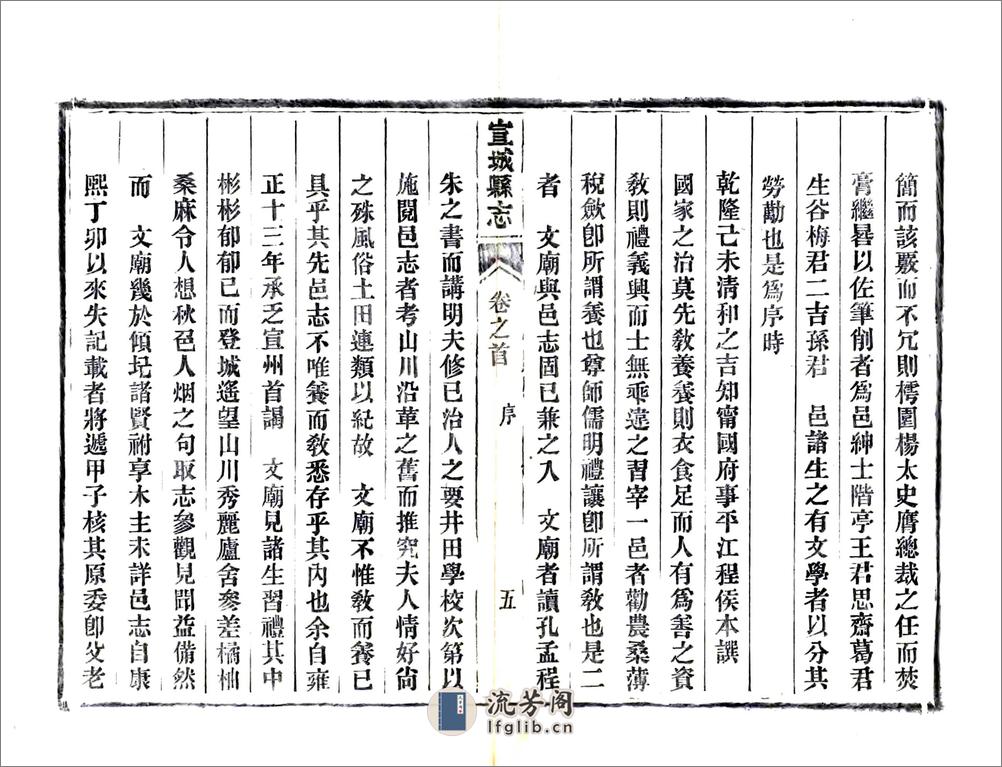 簡而該覈而不冗則樗園楊太史膺總裁之任而焚
膏繼晷以佐筆削者為邑紳士階亭王君思齋葛君
生谷梅君二吉孫君　邑諸生之有文學者以分其
勞勸也是為序時
乾隆己未清和之吉知甯國府事平江程侯本譔
國家之治莫先敎養養則衣食足而人有為善之資
敎則禮義興而士無乖違之習宰一邑者勸農桑薄
稅斂卽所謂養也尊師儒明禮讓卽所謂敎也是二
者　文廟與邑志固已兼之入　文廟者讀孔孟程
宣城縣志
卷之首
序
五
朱之書而講明夫修已治人之要井田學校次第以
施閱邑志者考山川沿革之舊而推究夫人情好尙
之殊風俗土田連類以紀故　文廟不惟敎而養已
具乎其先邑志不唯養而敎悉存乎其內也余自雍
正十三年承乏宣州首謁　文廟見諸生習禮其中
彬彬郁郁已而登城遙望山川秀麗廬舍參差橘柚
桑麻令人想秋色人烟之句取志參觀見聞益備然
而　文廟幾於傾圮諸賢祔享木主未詳邑志自康
熙丁卯以來失記載者將遞甲子核其原委卽父老
流芳阁
lfglib.cn